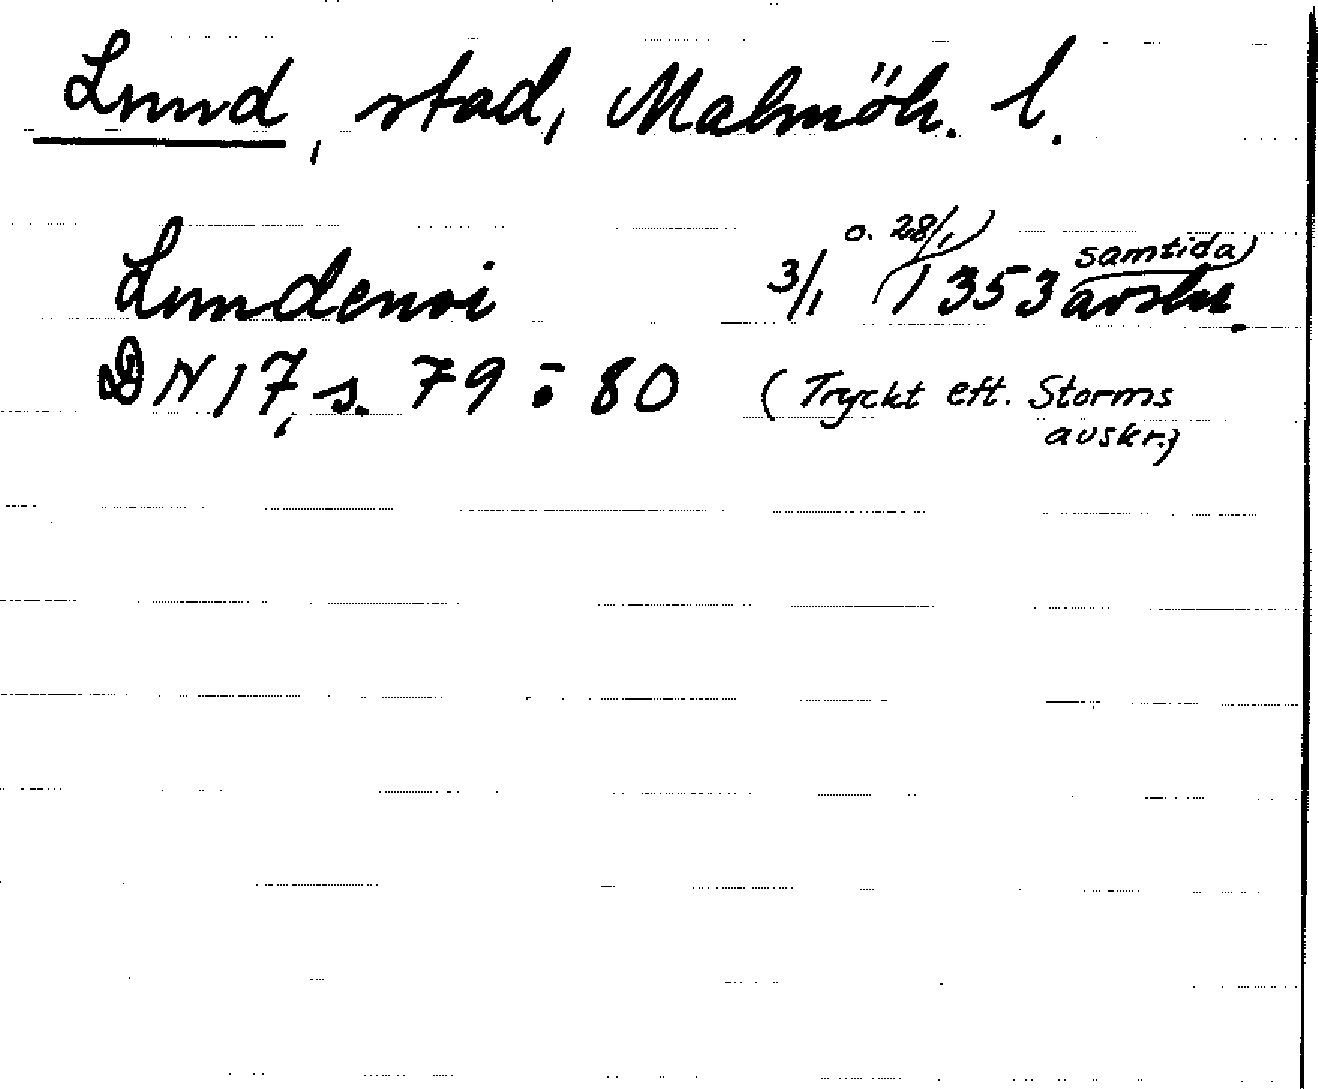 Lund, stad, Malmöh. l.
Lundensi 3/1 o. 28/1 1353 samtida avskr.
DN 17, s. 79 o 80 (Tryckt eft. Storms
avskr.)